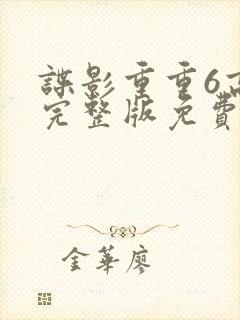 諜影重重6高
完整版免費
金華廖